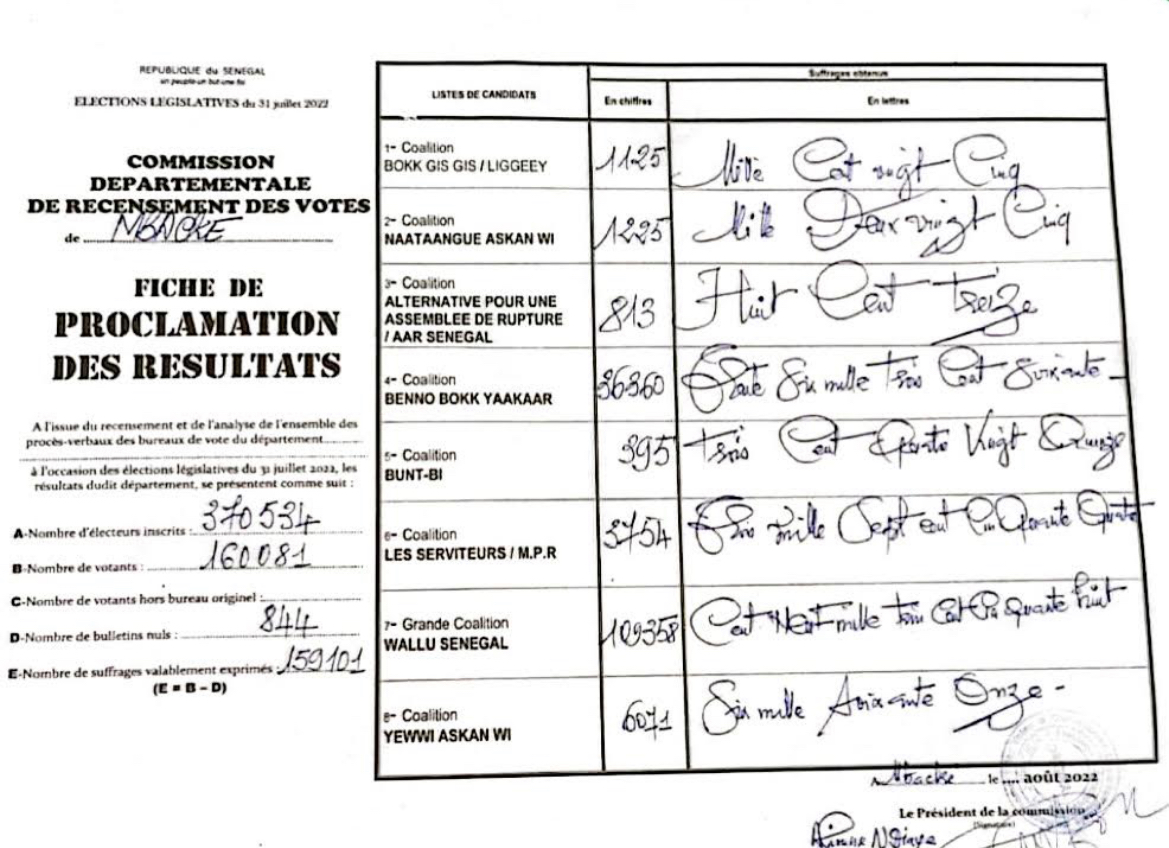 REPUBLIQUE du SENEGAL
un peuple-un but-une foi
ELECTIONS LEGISLATIVES du 31 juillet 2022
COMMISSION
DEPARTEMENTALE
DE RECENSEMENT DES VOTES
de MBACKE
FICHE DE
PROCLAMATION
DES RESULTATS
A l'issue du recensement et de l'analyse de l'ensemble des
procès-verbaux des bureaux de vote du département
à l'occasion des élections législatives du 31 juillet 2022, les
résultats dudit département, se présentent comme suit :
A-Nombre d'électeurs inscrits : 370534
B-Nombre de votants : 160081
C-Nombre de votants hors bureau originel :
D-Nombre de bulletins nuls : 844
E-Nombre de suffrages valablement exprimés : 159101
(E = B – D)
LISTES DE CANDIDATS
Suffrages obtenus
En chiffres
En lettres
1- Coalition
BOKK GIS GIS / LIGGEEY
1125
Mille Cent vingt Cinq
2- Coalition
NAATAANGUE ASKAN WI
1225
Mille Deux vingt Cinq
3- Coalition
ALTERNATIVE POUR UNE
ASSEMBLEE DE RUPTURE
/ AAR SENEGAL
813
Huit Cent Treize
4- Coalition
BENNO BOKK YAAKAAR
36360
Six mille Trois Cent Soixante
5- Coalition
BUNT-BI
395
Trois Cent Quatre Vingt Quinze
6- Coalition
LES SERVITEURS / M.P.R
3754
Trois mille Sept cent Cinquante Quatre
7- Grande Coalition
WALLU SENEGAL
109358
Cent Neuf mille trois Cent Cinquante huit
8- Coalition
YEWWI ASKAN WI
6071
Six mille Soixante Onze -
A Mbacké le .... août 2022
Le Président de la commission
(Signature)
Ndiaye